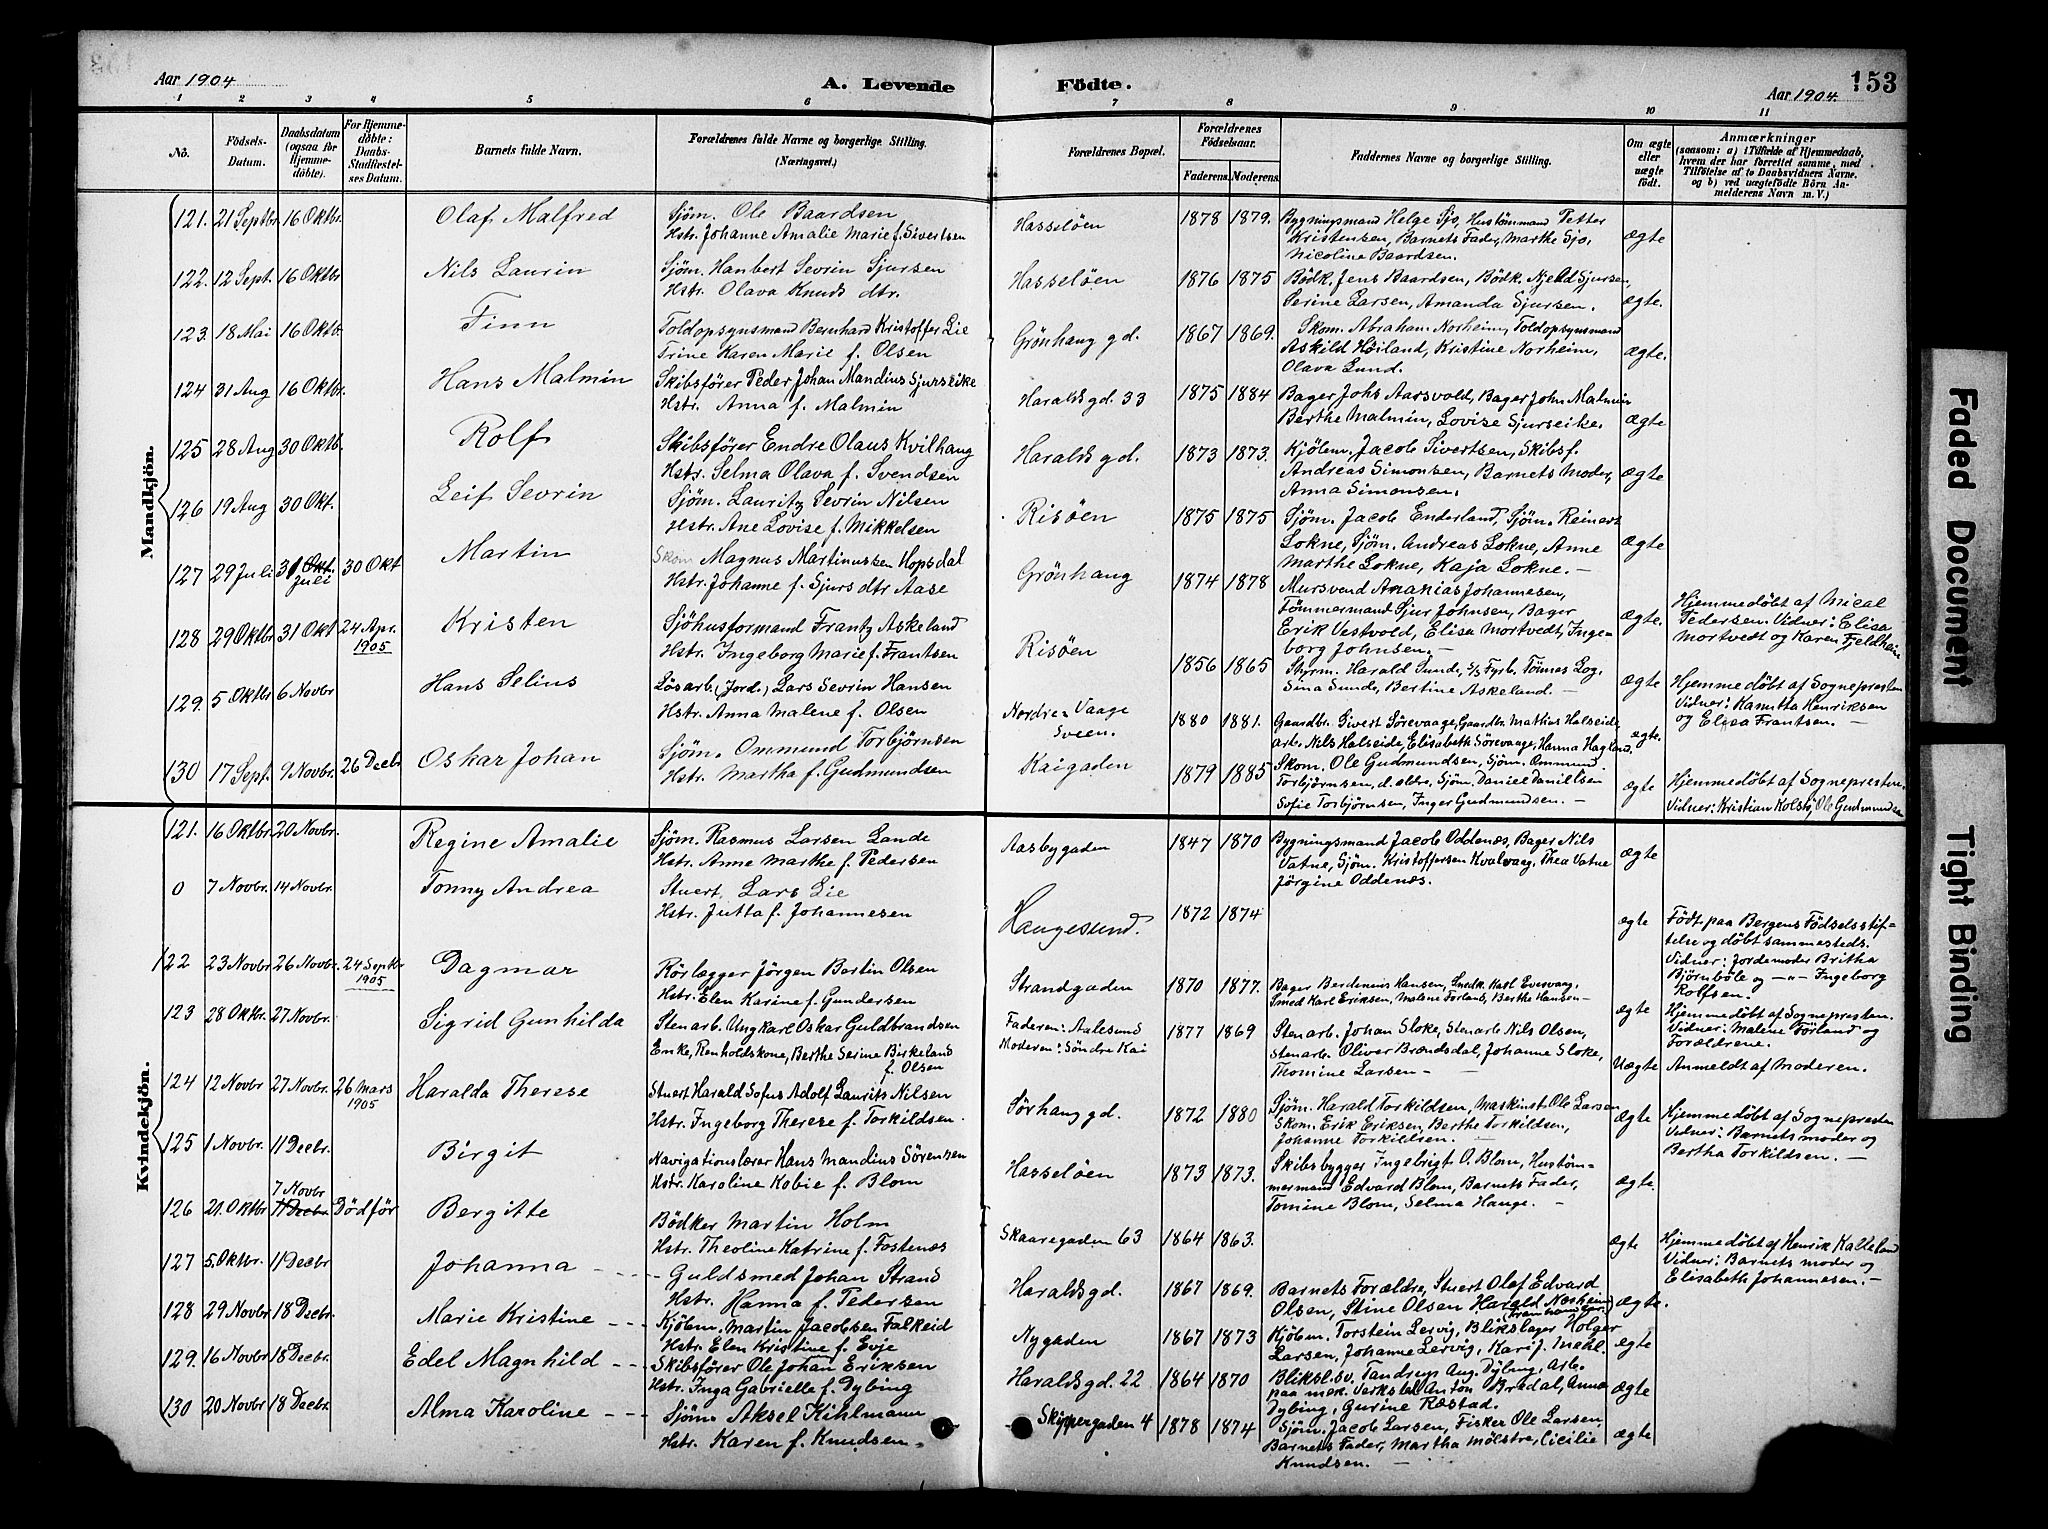 Aar 1904
A. Levende
Födte.
Aar 1904.
153
1 2 3 4 5 6 7 8 9 10 11
No.
Födsels-
Datum.
Daabsdatum
(ogsaa for
Hjemme-
døbte).
For Hjemme-
döbte:
Daabs-
Stadfæstel-
ses Datum.
Barnets fulde Navn.
Forældrenes fulde Navne og borgerlige Stilling.
(Næringsvei.)
Forældrenes Bopæl.
Forældrenes
Födselsaar.
Faderens. Moderens.
Faddernes Navne og borgerlige Stilling.
Om ægte
eller
uægte
födt.
Anmærkninger
(saasom: a) i Tilfælde af Hjemmedaab,
hvem der har forrettet samme, med
Tilföielse af to Daabsvidners Navne.
og b) ved uægtefödte Börn An-
melderens Navn m. V.)
Mandkjön.
121. 21 Septbr 16 Oktbr. Olaf Malfred
Sjøm. Ole Baardsen
Hstr. Johanne Amalie Marie f. Sivertsen
Hasseløen 1878 1879.
Bygningsmand Helge Sjo, Hustømmand Petter
Kristensen, Barnets Fader, Marthe Sjo,
Nicoline Baardsen.
ægte
122. 12 Sept. 16 Oktbr Nils Laurin
Sjøm. Hanbert Sevrin Sjursen
Hstr. Olava Knuds dtr.
Hasseløen 1876 1875
Bødk. Jens Baardsen, Bødk. Njeld Sjursen,
Serine Larsen, Amanda Sjursen.
ægte.
123. 18 Mai 16 Oktb. Finn
Toldopsynsmand Bernhard Kristoffer Lie
Trine Karen Marie f. Olsen
Grönhaug gd. 1867 1869.
Skom. Abraham Norheim, Toldopsynsmand
Askild Høiland, Kristine Norheim,
Olava Lund.
ægte.
124 31 Aug 16 Oktbr. Hans Malmin
Skibsfører Peder Johan Mandius Sjurseike
Hstr. Anna f. Malmin
Haralds gd. 33 1875 1884
Bager Johs Aarsvold, Bager John Malmin
Berthe Malmin, Lovise Sjurseike.
ægte
125 28 Aug 30 Oktb. Rolf
Skibsfører Endre Olaus Kvilhaug
Hstr. Selma Olava f. Svendsen
Haralds gd. 1873 1873.
Kjølem. Jacob Sivertsen, Skibsf.
Andreas Simonsen, Barnets Moder,
Anna Simonsen.
ægte
126 19 Aug 30 Okt. Leif Sevrin
Sjøm. Lauritz Sevrin Nilsen
Hstr. Ane Lovise f. Mikkelsen
Risøen 1875 1875
Sjøm. Jacob Enderland, Sjøm. Reinert
Lokne, Sjøm. Andreas Lokne, Anne
Marthe Lokne, Kaja Lokne. —
ægte
127 29 Juli 31 Okt. Juli 30 Okt Martin
Skom Magnus Martinussen Hopsdal
Hstr. Johanne f. Sjurs dtr Aase
Grönhaug 1874 1878
Mursvend Ananias Johannesen,
Tømmermand Sjur Johnsen, Bager
Erik Vestvold, Elisa Mortvedt, Inge-
borg Johnsen. —
ægte.
Hjemmedøbt af Mical
Pedersen. Vidner: Elisa
Mortvedt og Karen Fjeldheim
128 29 Oktbr 31 Okt 24 Apr. 1905 Kristen
Sjöhusformand Frantz Askeland
Hstr. Ingeborg Marie f. Frantsen
Risøen 1856 1865
Styrm. Harald Sunde, s/s Fyrb. Tönnes Log.
Sina Sunde, Bertine Askeland. —
ægte
Hjemmedøbt af Sognepresten
Vidner: Kanutta Henriksen
og Elisa Frantsen. —
129. 5 Oktbr 6 Novbr. Hans Selius
Løsarb. (Jord.) Lars Sevrin Hansen
Hstr. Anna Malene f. Olsen
Nordre Vaage
Sveen. 1880 1881.
Gaardbr. Sivert Sörevaage, Gaardbr. Mathias Halseide
arb. Nils Halseide, Elisabeth Sörevaage, Hanna Hagland.
ægte.
130 17 Sept. 9 Novbr. 26 Decbr Oskar Johan
Sjøm. Ommund Torbjørnsen
Hstr. Martha f. Gudmundsen
Kaigaden 1879 1885
Skom. Ole Gudmundsen, Sjøm. Ommund
Torbjørnsen, d. eldre, Sjøm. Daniel Daniellsen
Sofie Torbjørnsen, Inger Gudmundsen. —
ægte
Hjemmedøbt af Sognepresten.
Vidner: Kristian Kolstø, Ole Gudmundsen
Kvindekjön.
121. 16 Oktbr. 20 Novbr. Regine Amalie
Sjøm. Rasmus Larsen Lande
Hstr. Anne Marthe f. Pedersen
Aasbygaden 1847 1870
Bygningsmand Jacob Oddenæs, Bager Nils
Vatne, Sjøm. Kristoffersen Kvalvaag, Thea Vatne
Jörgine Oddenæs.
ægte
0 7 Novbr. 14 Novbr. Tonny Andrea
Stuert Lars Lie
Hstr. Jutta f. Johannesen
Haugesund. 1872 1874
ægte
Født paa Bergens Fødselsstif-
telse og døbt sammesteds.
Vidner: Jordemoder Britha
Björnböle og —"— Ingeborg
Rolfsen.
122 23 Novbr 26 Novbr. 24 Septbr. 1905 Dagmar
Rørlægger Jörgen Bertin Olsen
Hstr. Elen Karine f. Gundersen
Strandgaden 1870 1877.
Bager Berdinius Hansen, Smedk. Karl Eversvaag,
Smed Karl Eriksen, Malene Förland, Berthe Hansen —
ægte
Hjemmedøbt af Sognepresten.
Vidner: Malene Förland og
Forældrene.
123 28 Oktbr. 27 Novbr. Sigrid Gunhilda
Stenarb. Ungkarl Oskar Guldbrandsen
Enke, Renholdskone, Berthe Serine Birkeland
f. Olsen
Faderen: Aalesund
Moderen: Søndre Kai
1877 1869
Stenarb. Johan Sloke, Stenarb Nils Olsen,
Stenarb. Oliver Brændsdal, Johanne Sloke,
Thomine Larsen —
Uægte
Anmeldt af Moderen.
124 12 Novbr 27 Novbr. 26 Mars 1905 Haralda Therese
Stuert Harald Sofus Adolf Laurits Nilsen
Hstr. Ingeborg Therese f. Torkildsen.
Sørhaug gd. 1872 1880
Sjøm. Harald Torkildsen, Maskinst. Ole Larsen
Skom. Erik Eriksen, Berthe Torkildsen,
Johanne Torkildsen. —
ægte
Hjemmedøbt af Sognepresten
Vidner: Barnets Moder og
Bertha Torkildsen. —
125 1 Novbr. 11 Decbr. Birgit
Navigationslærer Hans Mandius Sörensen
Hstr. Karoline Kobie f. Blom
Hasseløen 1873 1873.
Skibsbygger Ingebrigt O. Blom, Hustøm-
mermand Edvard Blom, Barnets Fader,
Tomine Blom, Selma Hauge. —
ægte.
126 21. Oktbr 7 Novbr 11 Decbr. Dödför Bergitte
Bödker Martin Holm
Hstr. Theoline Katrine f. Fostenæs
Skaaregaden 63 1864 1863.
ægte
Hjemmedøbt af Henrik Kalleland
Vidner: Barnets moder og
Elisabeth Johannesen. —
127 5. Oktbr. 11 Decbr Johanna
Guldsmed Johan Strand
Hstr. Hanna f. Pedersen
Haralds gd. 1867 1869.
Barnets Forældre, Stuert Olaf Edvard
Olsen, Stine Olsen Harald Norheim
ægte.
128 29 Novbr 18 Decbr. Marie Kristine
Kjölem. Martin Jacobsen Falkeid
Hstr. Elen Kristine f. Evje
Nygaden 1867 1873
Kjölem. Torstein Lervig, Blikslager Holger
Larsen, Johanne Lervig, Kari J. Mehl.
ægte
129. 16 Novbr 18 Decbr. Edel Magnhild
Skibsfører Ole Johan Eriksen
Hstr. Inga Gabrielle f. Dybing
Haralds gd. 22 1864 1870
Bliksl.sv. Tandrup Aug. Dybing, Arb.
paa mek. Verksted Anton Bredal, Anna
Dybing, Gurine Røstad.
ægte
130 20 Novbr 18 Decbr. Alma Karoline
Sjøm. Aksel Kihlmann
Hstr. Karen f. Knudsen.
Skippergaden 4 1878 1874
Sjøm. Jacob Larsen, Fisker Ole Larsen
Barnets Fader, Martha Mölstre, Cicilie
Knudsen. —
ægte
Faded Document
Tight Binding